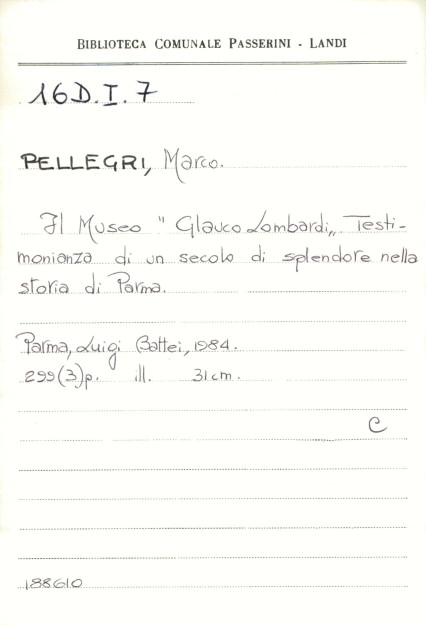 BIBLIOTECA COMUNALE PASSERINI - LANDI
16D.I.7
PELLEGRI, Marco.
Il Museo "Glauco Lombardi„ Testi-
monianza di un secolo di splendore nella
storia di Parma.
Parma, Luigi Battei, 1984.
299(3)p. ill. 31cm.
C
188610